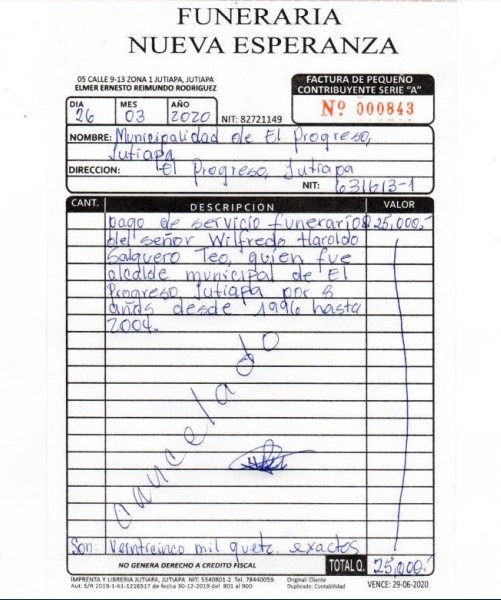 FUNERARIA
NUEVA ESPERANZA
05 CALLE 9-13 ZONA 1 JUTIAPA, JUTIAPA
ELMER ERNESTO REIMUNDO RODRIGUEZ
FACTURA DE PEQUEÑO
CONTRIBUYENTE SERIE "A"
Nº 000843
DIA 26 MES 03 AÑO 2020 NIT: 82721149
NOMBRE: Municipalidad de El Progreso,
Jutiapa
DIRECCION: El Progreso, Jutiapa
NIT: 631613-1
CANT. DESCRIPCION VALOR
pago de servicio funerario Q25,000.-
del señor Wilfredo Haroldo
Salguero Teo, quien fue
alcalde municipal de El
Progreso, Jutiapa por 8
años desde 1996 hasta
2004.
cancelado
Son: Veintcinco mil quetz. exactos
NO GENERA DERECHO A CREDITO FISCAL
TOTAL Q. 25,000.-
IMPRENTA Y LIBRERIA JUTIAPA, JUTIAPA NIT: 5340801-2 Tel. 78440059
Aut. S/R 2019-1-61-1216517 de fecha 30-12-2019 del 801 al 900
Original: Cliente
Duplicado: Contabilidad
VENCE: 29-06-2020